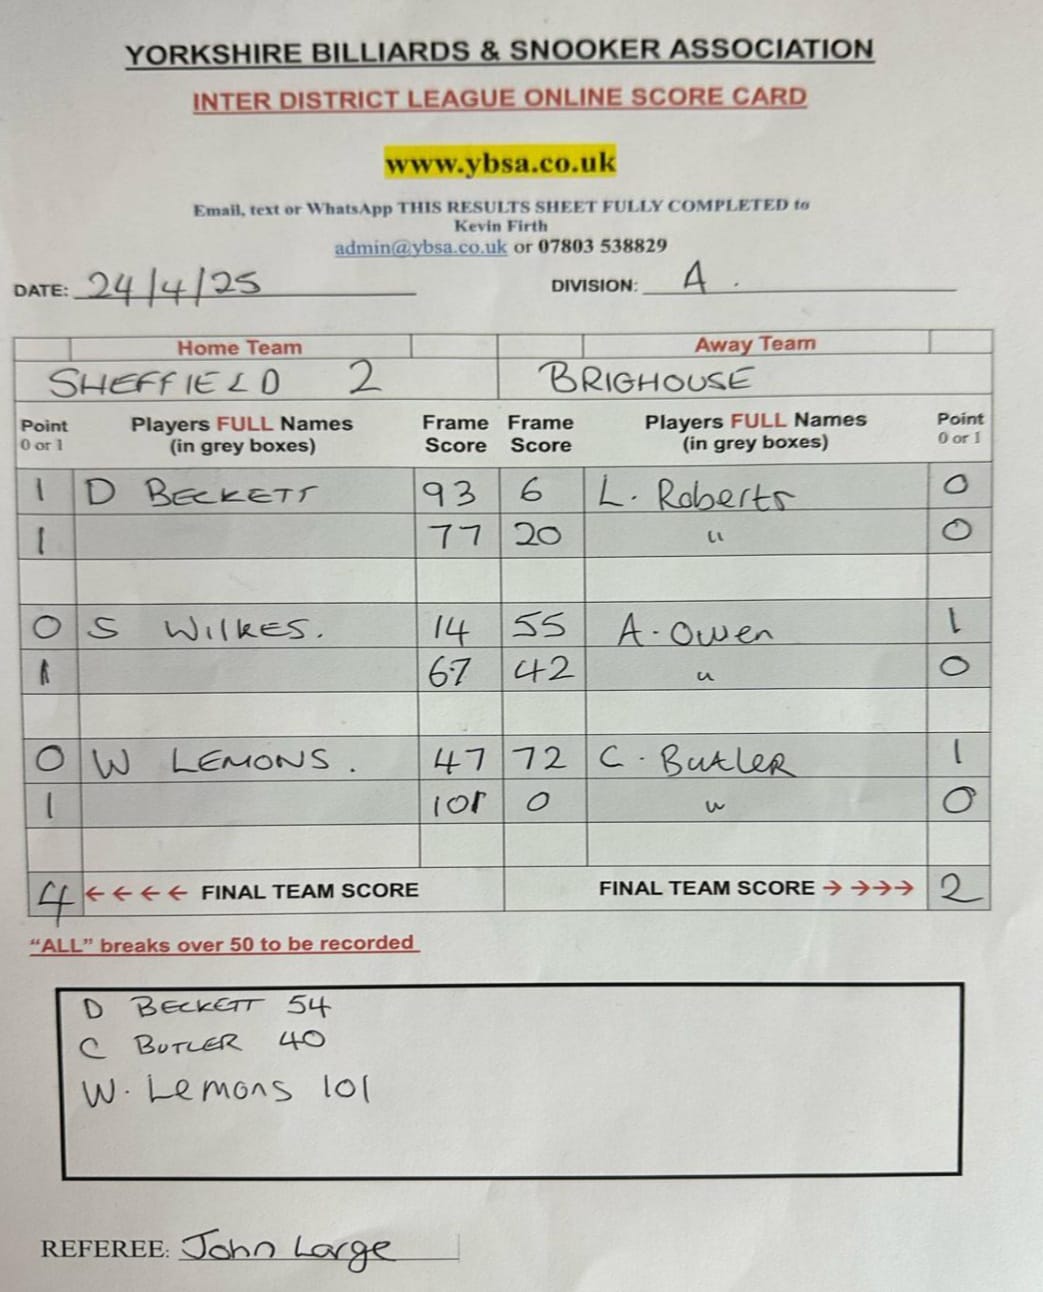 YORKSHIRE BILLIARDS & SNOOKER ASSOCIATION
INTER DISTRICT LEAGUE ONLINE SCORE CARD
www.ybsa.co.uk
Email, text or WhatsApp THIS RESULTS SHEET FULLY COMPLETED to
Kevin Firth
admin@ybsa.co.uk or 07803 538829
DATE: 24/4/25 DIVISION: A.
Home Team Away Team
SHEFFIELD 2 BRIGHOUSE
Point Players FULL Names Frame Frame Players FULL Names Point
0 or 1 (in grey boxes) Score Score (in grey boxes) 0 or 1
1 D BECKETT 93 6 L. Roberts 0
1 77 20 " 0
0 S WILKES. 14 55 A. Owen 1
1 67 42 " 0
0 W LEMONS. 47 72 C. BUTLER 1
1 101 0 " 0
4 ← ← ← ← FINAL TEAM SCORE FINAL TEAM SCORE → → → → 2
"ALL" breaks over 50 to be recorded
D BECKETT 54
C BUTLER 40
W. Lemons 101
REFEREE: John Large